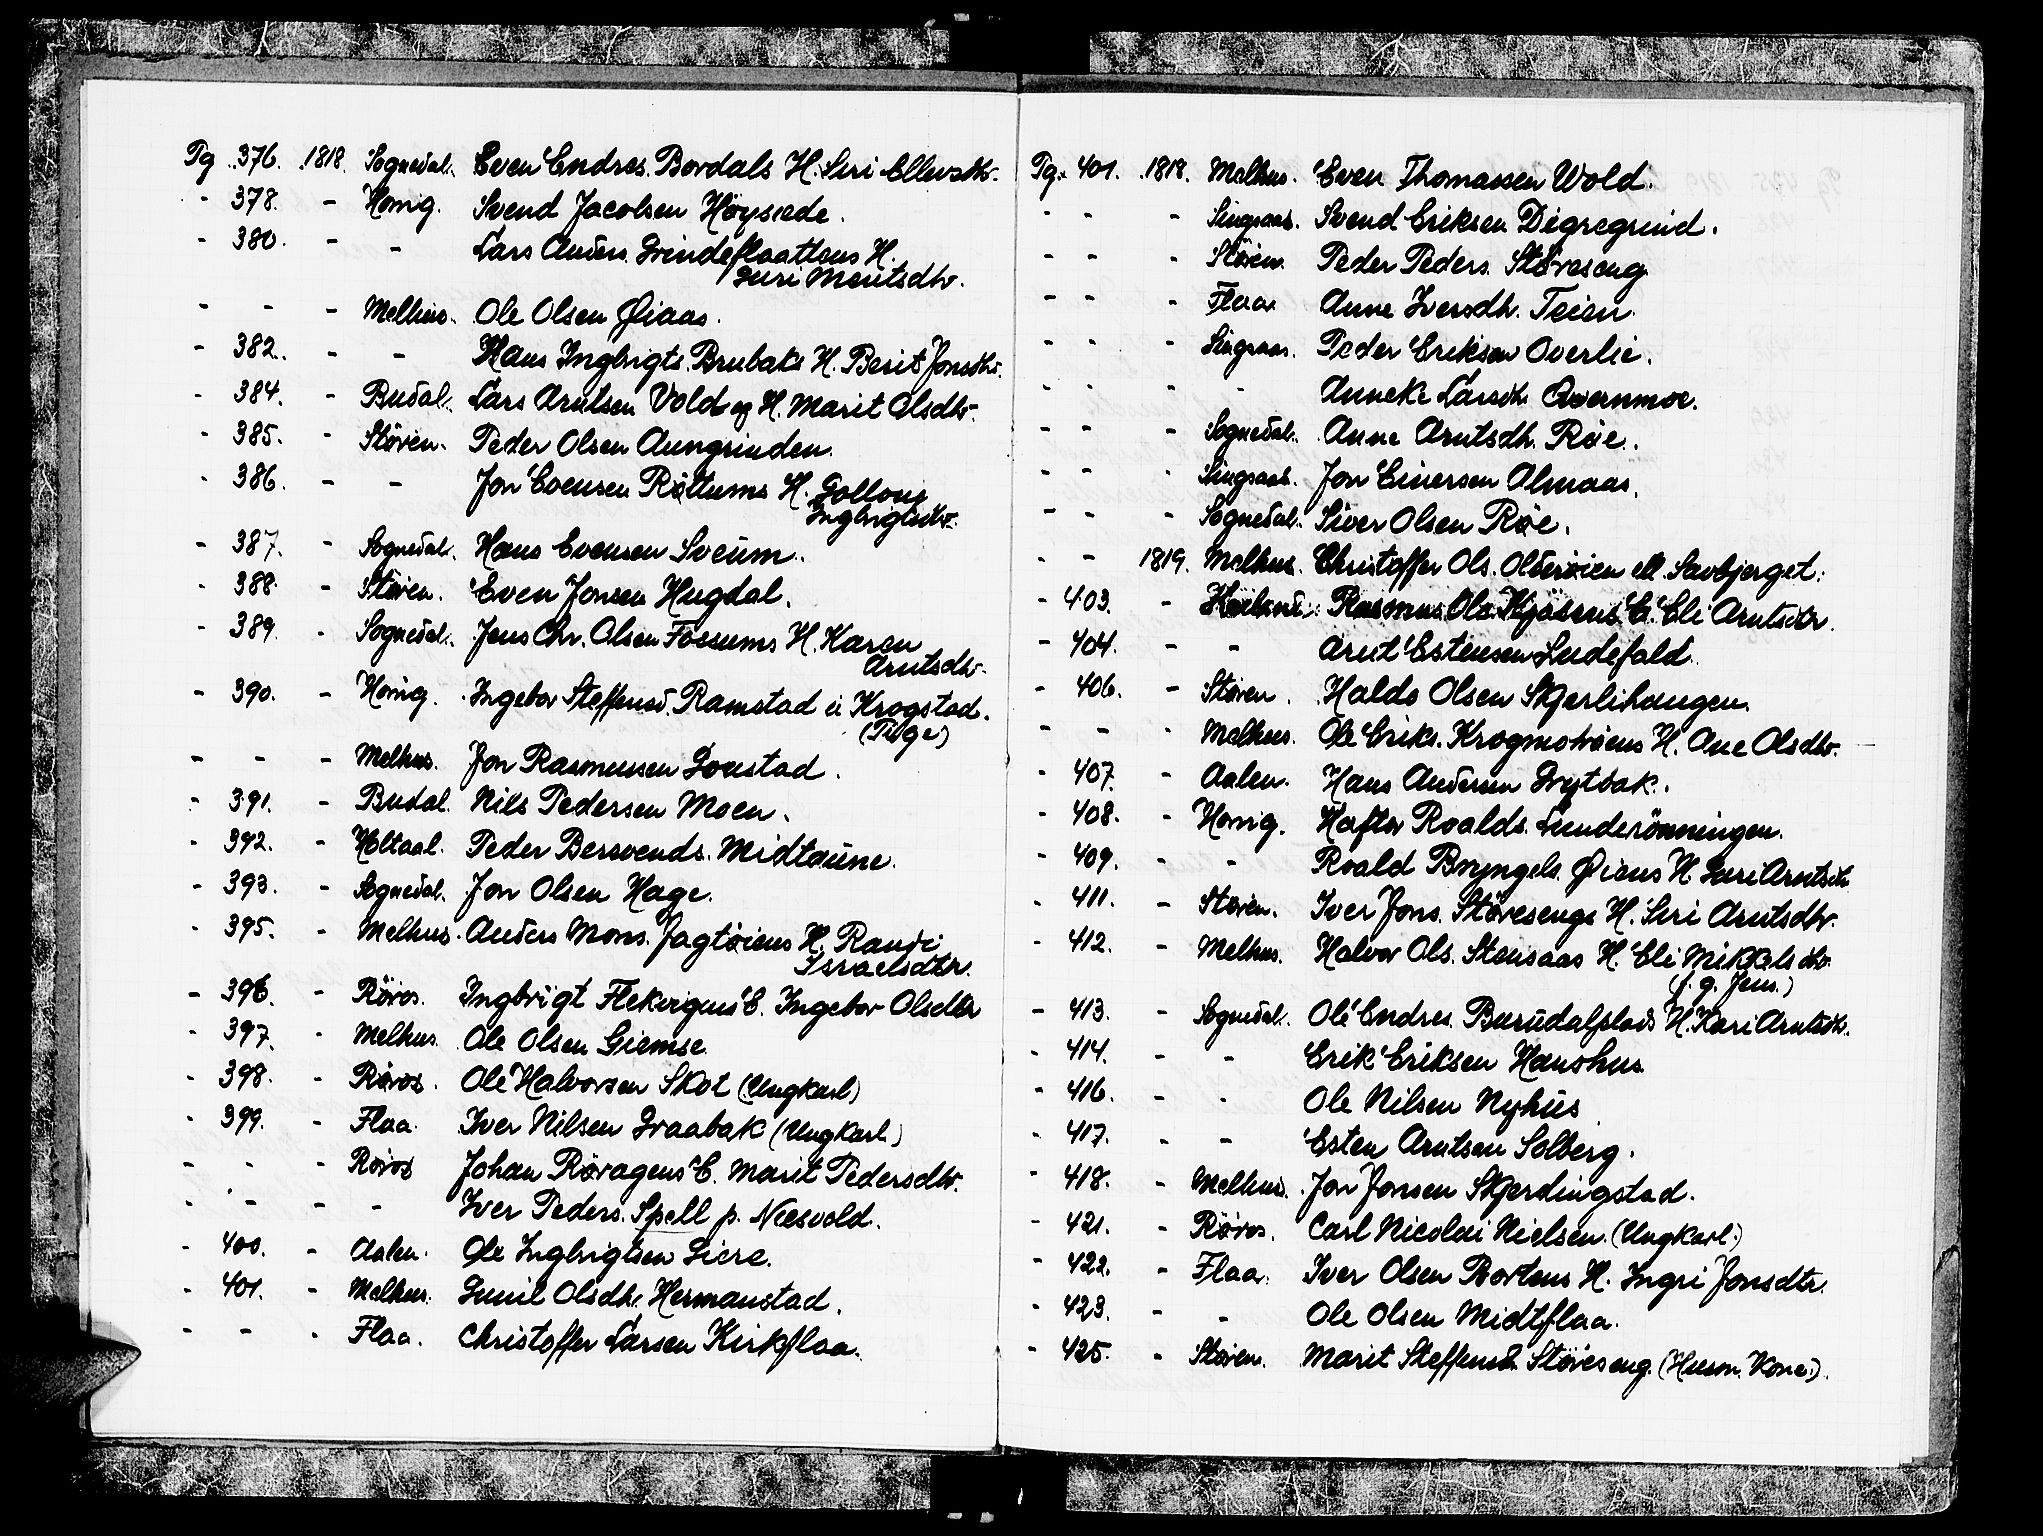 Pg. 376. 1818. Sognedal. Even Endres. Bordals H. Siri Ellevsdtr.
- 378. - Hørrig. Svend Jacobsen Høysæde.
- 380. - - Lars Anders. Grindeflaattens H.
Guri Mentsdtr.
- - - Melhus. Ole Olsen Øiaas.
- 382. - - Hans Ingbrigts. Brubaks H. Berit Jonsdtr.
- 384. - Budal. Lars Arntsen Vold og H. Marit Olsdtr.
- 385. - Støren. Peder Olsen Aungrinden.
- 386. - - Jon Evensen Røttums H. Golloug
Ingbrigtsdtr.
- 387. - Sognedal. Hans Evensen Sveum.
- 388. - Støren. Even Jonsen Hugdal.
- 389. - Sognedal. Jens Chr. Olsen Fossums H. Karen
Arntsdtr.
- 390. - Hørrig. Ingebor Steffensd. Ramstad ei Krogstad.
(Pige)
- - - Melhus. Jon Rasmussen Loustad.
- 391. - Budal. Nils Pedersen Moen.
- 392. - Holtaal. Peder Bersvends. Midtaune.
- 393. - Sognedal. Jon Olsen Hage.
- 395. - Melhus. Anders Mons. Jagtøiens H. Randi
Israelsdtr.
- 396. - Røros. Ingbrigt Flekvigens E. Ingebor Olsdtr
- 397. - Melhus. Ole Olsen Giemse.
- 398. - Røros. Ole Halvorsen Skot (Ungkarl)
- 399. - Flaa. Iver Nilsen Graabak (Ungkarl)
- - - Røros Johan Røragens E. Marit Pedersdtr.
- - - - Iver Peders. Spell p. Næsvold.
- 400. - Aalen. Ole Ingbrigtsen Liere.
- 401. - Melhus. Gunil Olsdtr. Hermanstad.
- - - Flaa. Christoffer Larsen Kirkflaa.
Pg. 401. 1818. Melhus. Even Thomassen Wold.
- - - Singsaas. Svend Eriksen Digregrind.
- - - Støren. Peder Peders. Støreseng
- - - Flaa Anne Iversdtr. Teien.
- - - Singsaas. Peder Eriksen Overlie.
- - - - Anneke Larsdtr. Avernmoe.
- - - Sognedal. Anne Arntsdtr. Røe.
- - - Singsaas. Jon Einersen Almaas.
- - - Sognedal. Siver Olsen Røe.
- - 1819. Melhus. Christoffer Ols. Olterøien ell. Savbjerget.
- 403. - Rasmus Ols. Kjøsens E. Eli Arntsdtr.
- 404. - - Arnt Estensen Ledefald.
- 406. - Støren. Haldo Olsen Skjerlihaugen.
- - - Melhus. Ole Eriks. Krogmotrøens H. Ane Olsdtr.
- 407. - Aalen. Hans Andersen Grytbak.
- 408. - Hørrig. Haftor Roalds. Lunderönningen.
- 409. - - Roald Bryngels. Øians H. Guri Arntsdtr
- 411. - Støren. Iver Jons. Støresengs H. Siri Arntsdtr.
- 412. - Melhus. Halvor Ols. Stensaas H. Eli Mikkelsdtr.
(f. g. Jens.)
- 413. - Sognedal. Ole Endres. Burudalsplads H. Kari Arntsdtr.
- 414. - - Erik Eriksen Haushus
- 416. - - Ole Nilsen Nyhus
- 417. - - Esten Arntsen Solberg.
- 418. - Melhus. Jon Jonsen Skjerdingstad.
- 421. - Røros. Carl Nicolai Nielsen. (Ungkarl.)
- 422. - Flaa. Iver Olsen Bortens H. Ingri Jonsdtr.
- 423. - - Ole Olsen Midtflaa.
- 425. - Støren. Marit Steffensd. Støreseng. (Husm. Kone.)